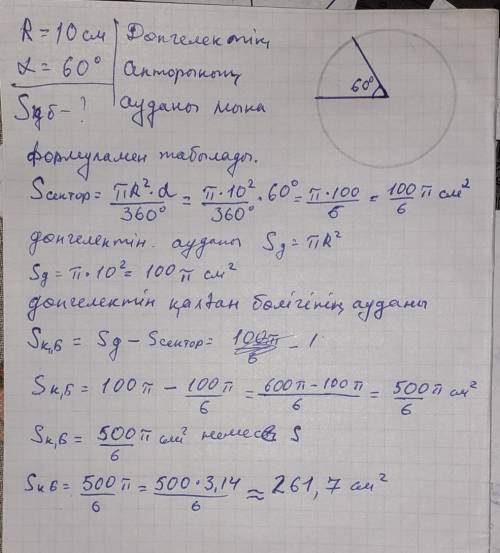 R = 10 см | Дөңгелектің
α = 60° | секторының
Sқб - ? | ауданы мына
60°
формуламен табылады.
Sсектор = πR²·α/360° = π·10²/360°·60° = π·100/6 = 100/6 π см²
дөңгелектің ауданы Sд = πR²
Sд = π·10² = 100π см²
дөңгелектің қалған бөлігінің ауданы
Sқ,б = Sд - Sсектор =
Sқ,б = 100π - 100π/6 = 600π - 100π/6 = 500π/6 см²
Sқ,б = 500π/6 см² немесе S
Sқб = 500π/6 = 500·3,14/6 ≈ 261,7 см²